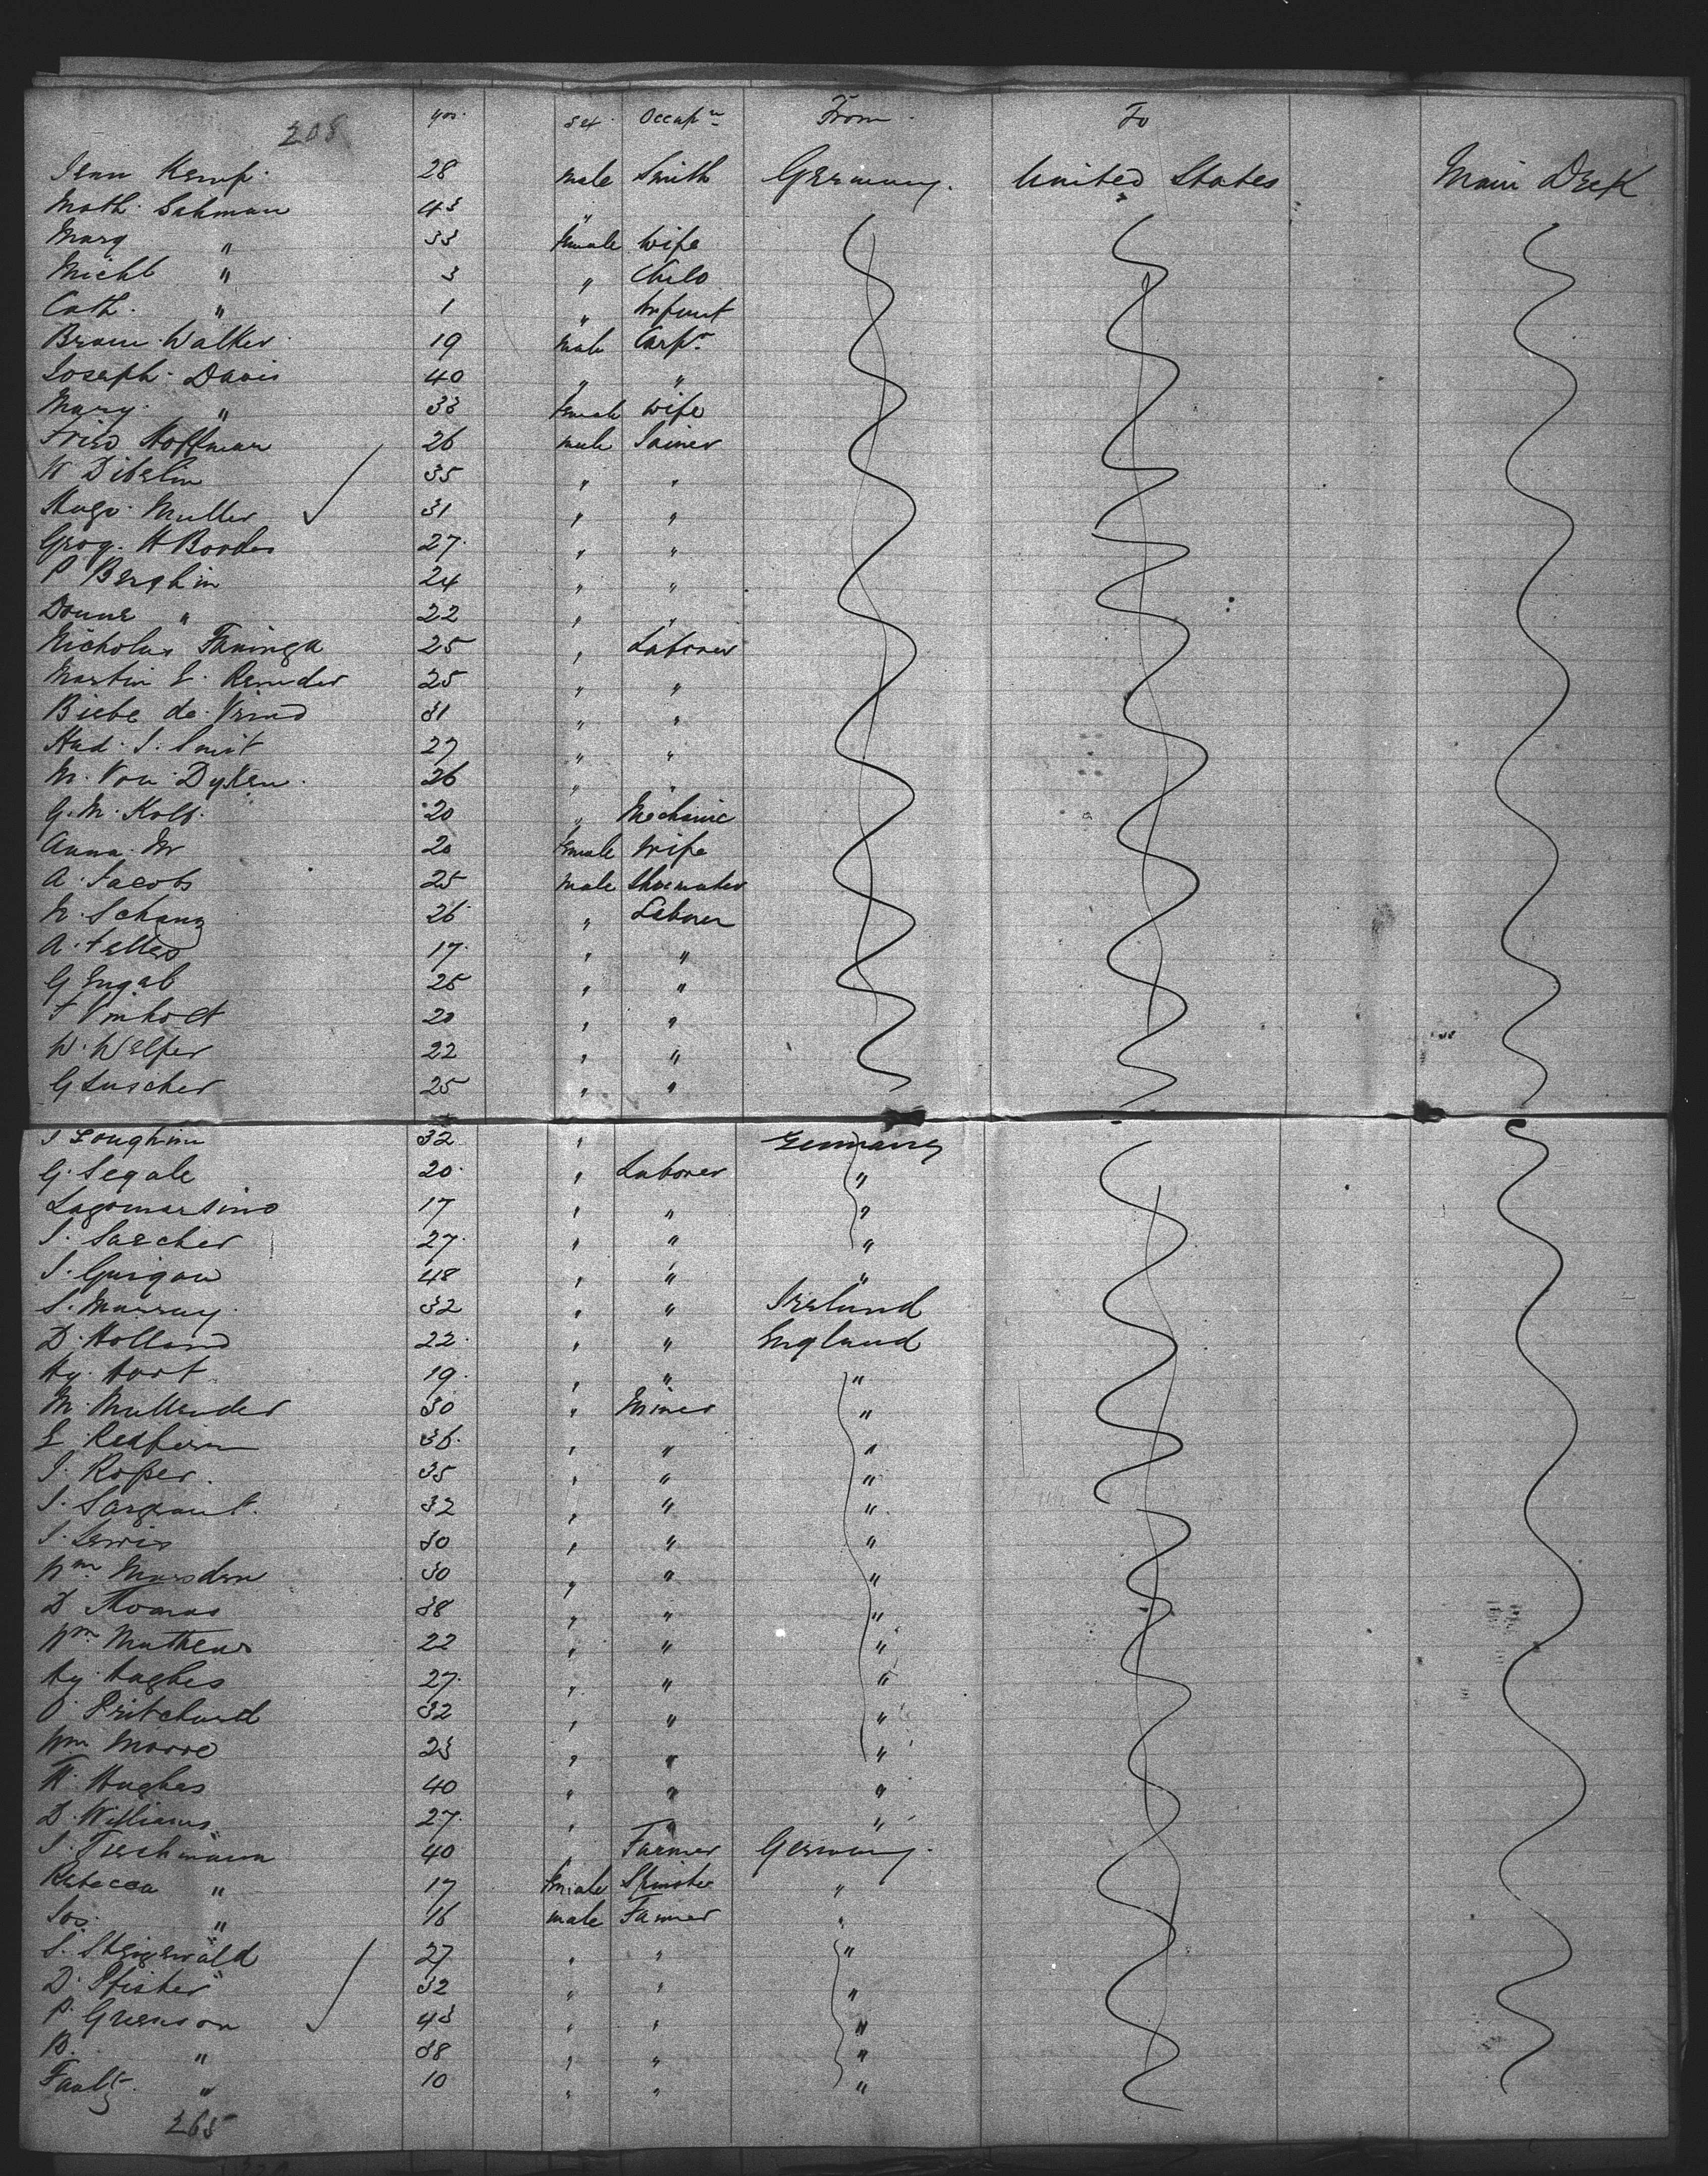 208 yrs. Sex Occupn From To
Jean Kemp 28 male Smith Germany. United States Main Deck
Math. Lahman 43 "
Marg " 33 female Wife
Michl " 3 " Child
Cath. " 1 " Infant
Walker 19 male Carpr
Joseph Davis 40 " "
Mary " 33 female Wife
Fried Hoffman 26 male
W Dibelin 35 " "
Hugo Muller 31 " "
27 " "
P Berghin 24 " "
" 22 " "
Nicholas Faninga 25 " Laborer
Martin 25 " "
Biebe de Vrind 31 " "
S. Smit 27 " "
M. Von Dyken 26 " "
G. M. Kolb 20 " Mechanic
Anna M 20 female Wife
A. Jacobs 25 male Shoemaker
N. Schanz 26 " Laborer
A. Fellers 17 " "
G Engab 25 " "
F Vonholt 20 " "
W. Welfer 22 " "
G Luscher 25 " "
J Loughim 32 " Germany
G. Segale 20 " Laborer "
Lagomarsino 17 " " "
S. Sarcher 27 " " "
J. Guigon 48 " " "
S. Murray 32 " " Ireland
D. Holland 22 " " England
Hy. Hort 19 " " "
M. Mullender 30 " Miner "
E Redfern 36 " " "
J. Roper. 35 " " "
J. Sargeant. 32 " " "
J. Lewis 30 " " "
Wm Marsden 30 " " "
D Thomas 38 " " "
Wm Mathews 22 " " "
Hy Hughes 27 " " "
O Pritchard 32 " " "
Wm Moore 23 " " "
H. Hughes 40 " " "
D. Williams 27 " " "
J. Tiechmann 40 " Farmer Germany.
Rebecca " 17 female Spinster "
Jos. " 16 male Farmer "
S. Steigerwald 27 " " "
D. Pfister 32 " " "
P. Grenson 43 " " "
B. " 38 " " "
" 10 " " "
265